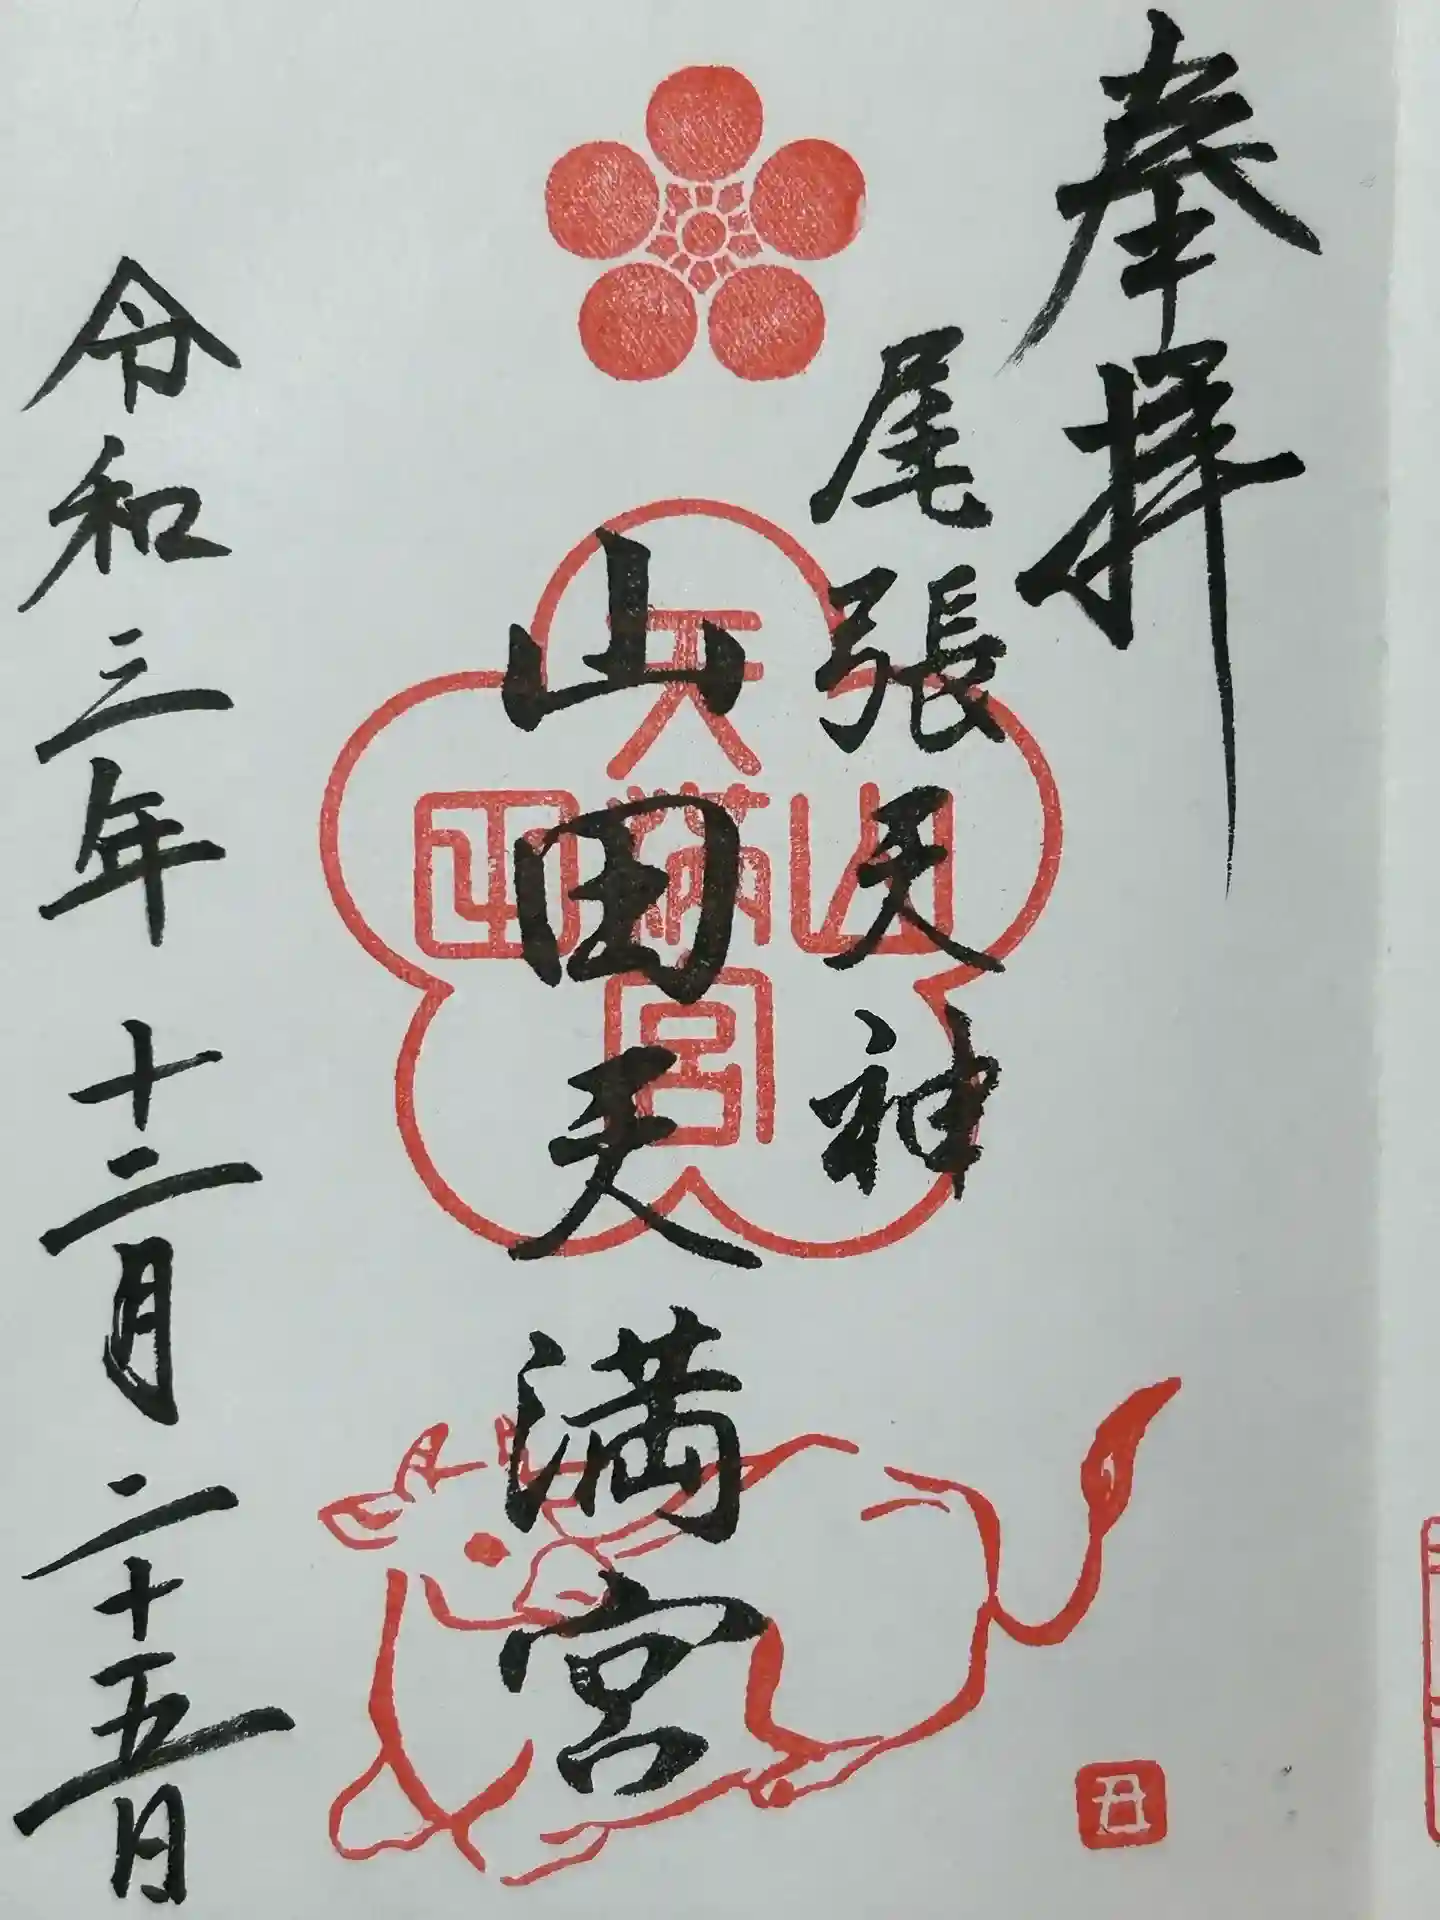 奉拝
尾張天神
山田天満宮
山田天満宮
令和三年十二月二十五日
丑